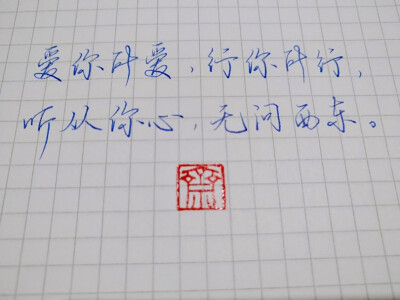 爱你所爱，行你所行，
听从你心，无问西东。